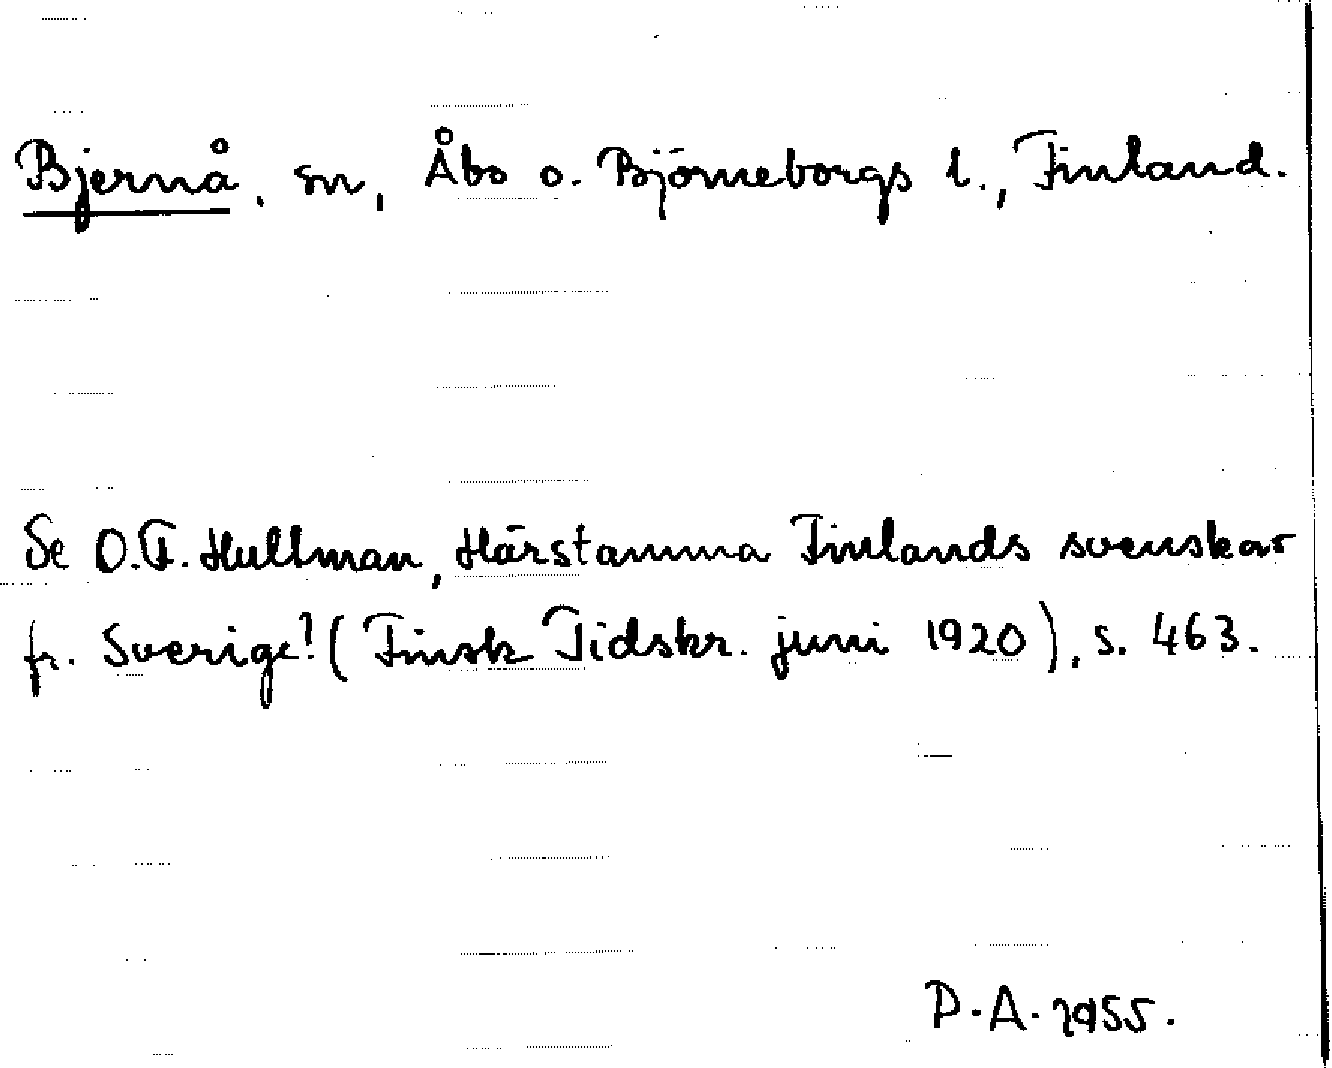 Bjernå, sn, Åbo o. Björneborgs l., Finland.
Se O.F. Hultman, Härstamma Finlands svenskar
fr. Sverige? (Finsk Tidskr. juni 1920), s. 463.
P.A. 1955.